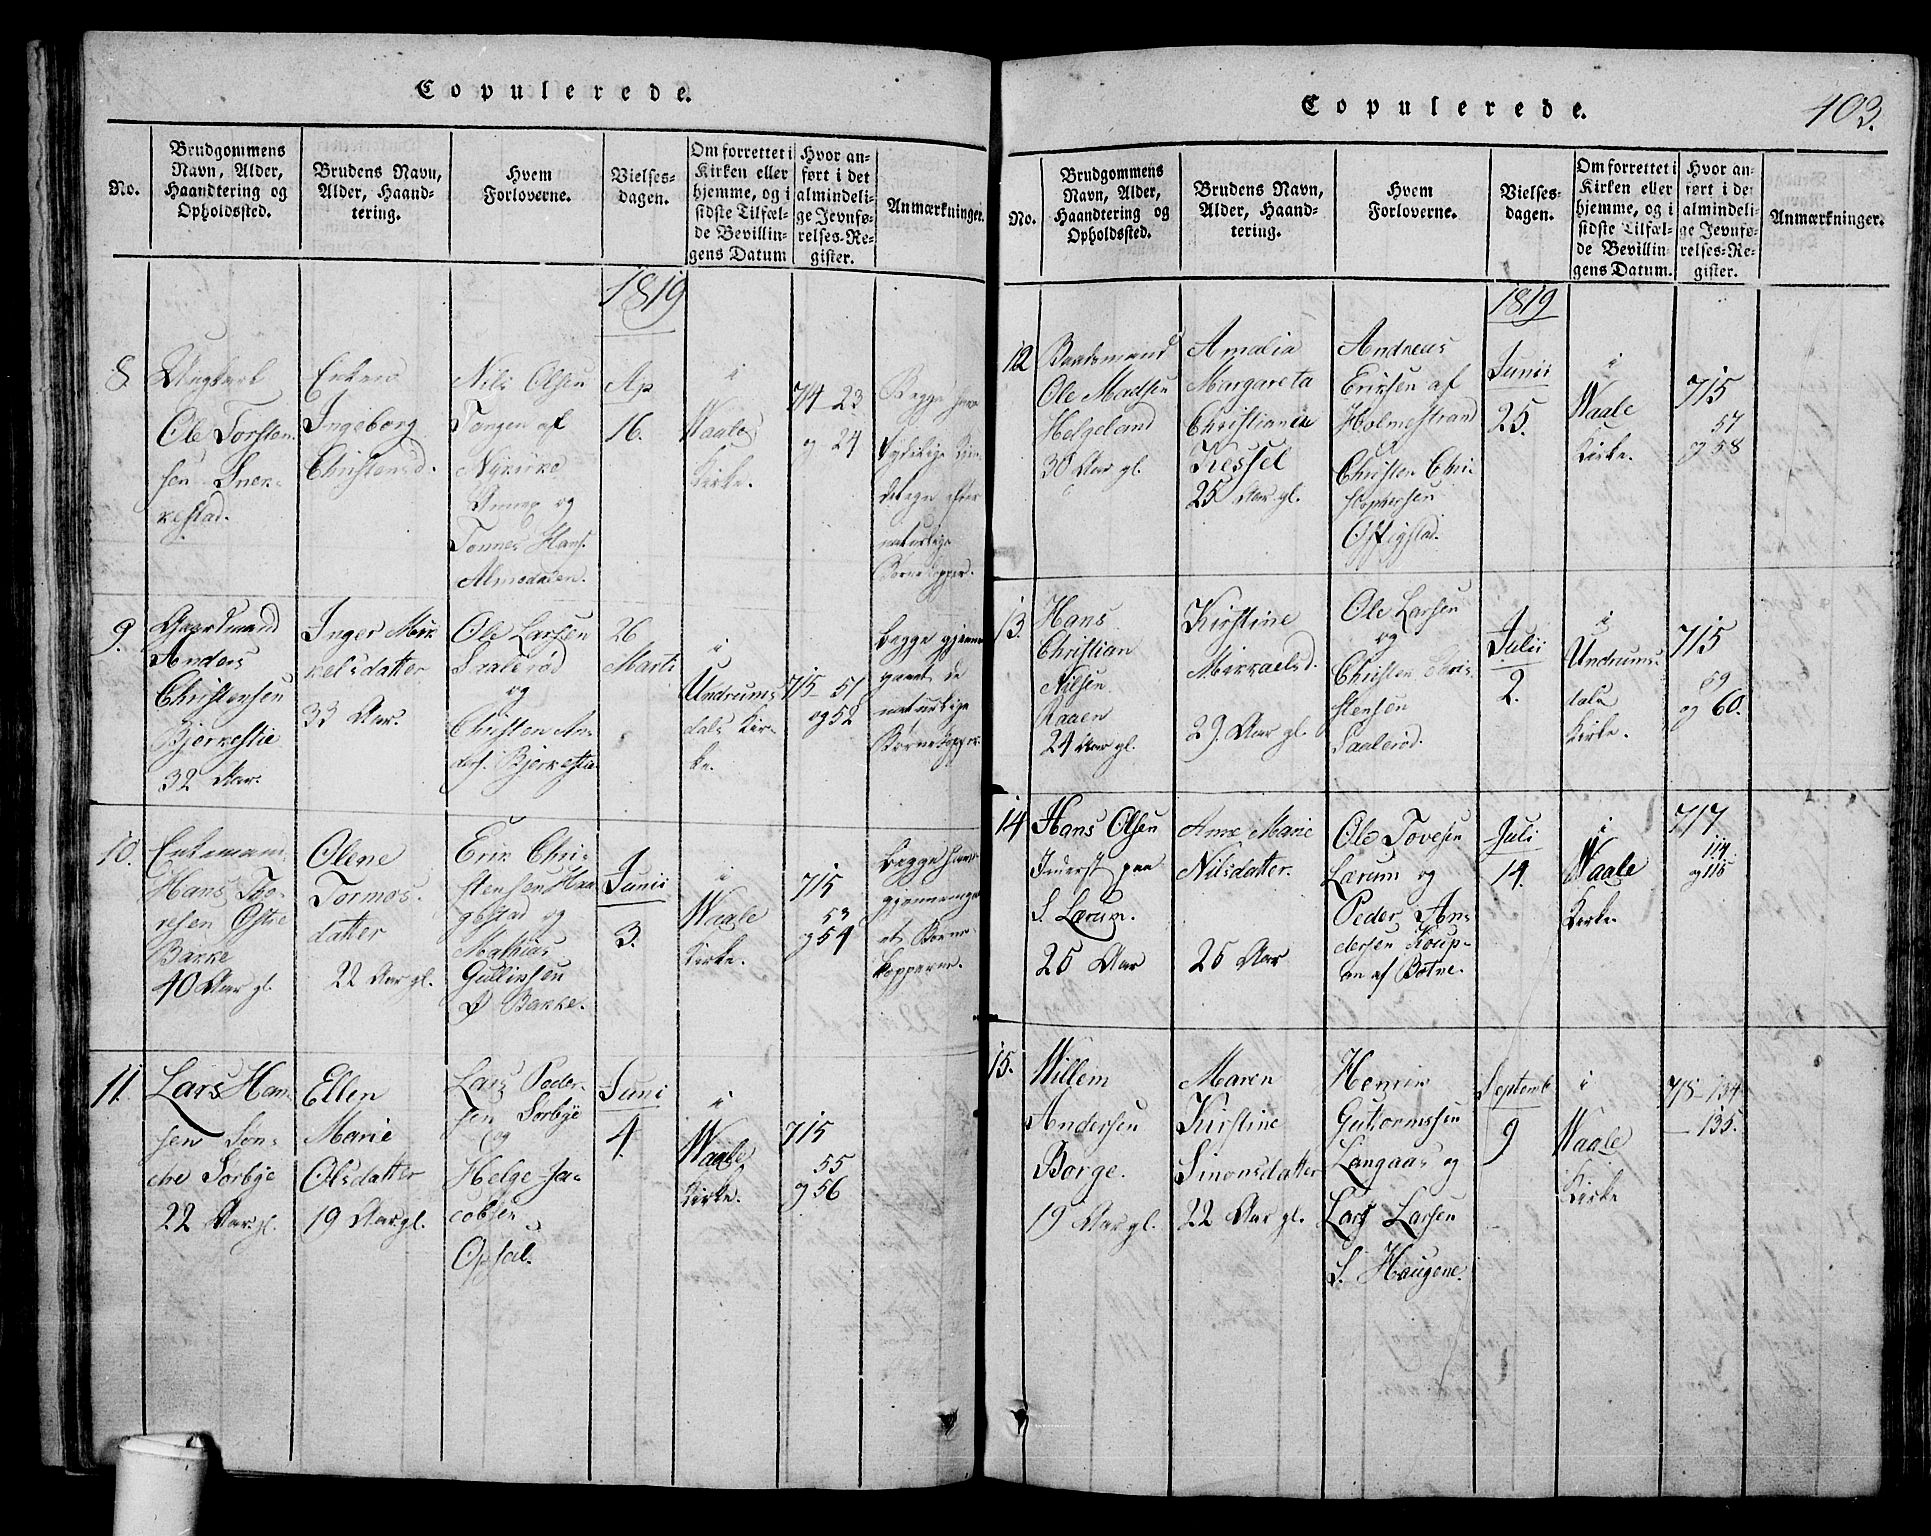 Copulerede.
No.
Brudgommens
Navn, Alder,
Haandtering og
Opholdssted.
Brudens Navn,
Alder, Haand-
tering.
Hvem
Forloverne.
Vielses-
dagen.
Om forrettet i
Kirken eller
hjemme, og i
sidste Tilfæl-
de Bevillin-
gens Datum
Hvor an-
ført i det
almindeli-
ge Jevnfø-
relses-Re-
gister.
Anmærkninger.
1819
8.
Ungkarl
Ole Torsten
sen Snek-
kestad.
Enken
Ingeborg
Christensd.
Nils Olsen
Tangen af
Nykirke
Annex og
Tonnes Hans.
Almedalen.
Ap
16.
i
Waale
Kirke.
714-23
og 24
Begge have
tydelige
efter
naturlige
Børnekopper.
9.
Gaardmand
Anders
Christensen
Bjerkestie
32 Aar.
Inger Mik
kelsdatter
33 Aar.
Ole Larsen
Saalerød
og
Christen An
Bjerkestie
26
Marti
i
Undrums
dals Kir-
ke.
715-51
og 52
Begge gjenne
gaaet de
naturlige
Børnekopper.
10.
Enkemand
Hans Tho-
resen Østre
Bakke
40 Aar gl.
Olene
Tormos
datter
22 Aar gl.
Erik Chri-
stensen Haa
gestad og
Mathias
Gullinsen
Ø Bakke.
Junii
3.
i
Waale
Kirke.
715
53
og 54
Begge have
gjennemga-
et Børne
kopperne.
11.
Lars Han-
sen Søn-
dre Sørbye
22 Aar gl.
Ellen
Marie
Olsdatter
19 Aar gl.
Lars Peder-
sen Sørbye
og
Helge Ja-
cobsen
Opsal.
Juni
4.
i
Waale
Kirke.
715
55
og 56
Copulerede.
403.
No.
Brudgommens
Navn, Alder,
Haandtering og
Opholdssted.
Brudens Navn,
Alder, Haand-
tering.
Hvem
Forloverne.
Vielses-
dagen.
Om forrettet i
Kirken eller
hjemme, og i
sidste Tilfæl-
de Bevillin-
gens Datum.
Hvor an-
ført i det
almindeli-
ge Jevnfø-
relses-Re-
gister.
Anmærkninger.
1819
12
Baadsmand
Ole Madsen
Helgeland
30 Aar gl.
Amalia
Margareta
Christiane
Kessel
25 Aar gl.
Andreas
Eriksen af
Holmestrand
&
Christen Chri-
stophersen
Offigstad.
Junii
25.
i
Waale
Kirke.
715
57
og 58
13.
Hans
Christian
Nilsen
Raaen
24 Aar gl.
Kirstine
Mikkaelsd.
29. Aar gl.
Ole Larsen
og
Christen Chris-
stensen
Saalerød.
Julii
2.
i
Undrums
dals
Kirke.
715
59
og 60.
14
Hans Olsen
Inderst paa
S. Lærum.
25 Aar
Anne Marie
Nilsdatter.
25 Aar
Ole Tovesen
Lærum og
Peder An-
dersen Koup-
an af Botne.
Juli
14.
i
Waale
Kirke.
717
114
og 115
15.
Willem
Andersen
Borge.
19 Aar gl.
Maren
Kirstine
Simonsdatter
22 Aar gl.
Henrik
Guttormssen
Langaas og
Lars Larsen
S. Haugene.
Septemb
9
i
Waale
Kirke
718-134
-135.